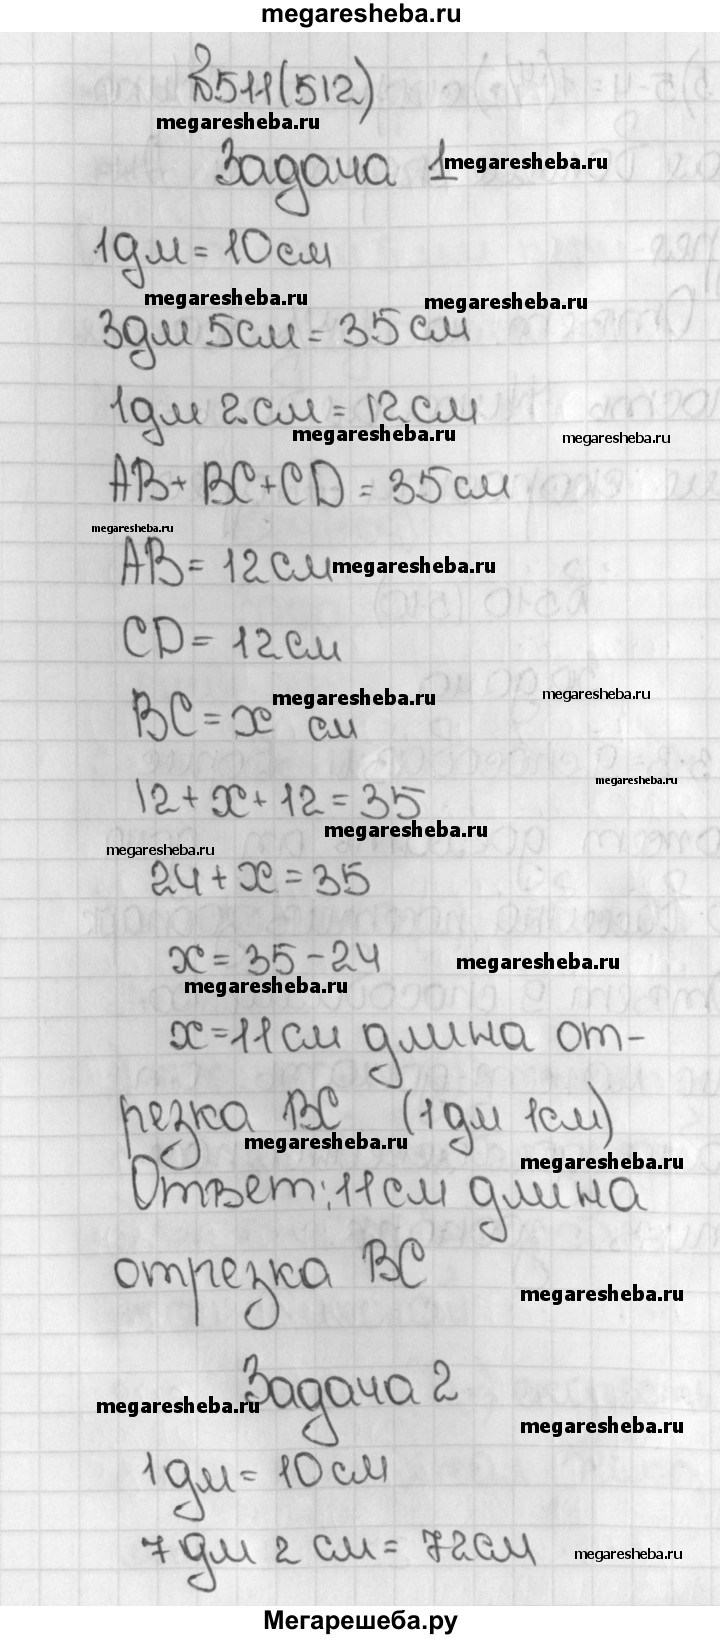 megaresheba.ru
№511(512)
megaresheba.ru
Задача 1 megaresheba.ru
1дм=10см
megaresheba.ru megaresheba.ru
3дм 5см=35см
1дм 2см=12см
megaresheba.ru megaresheba.ru
AB+BC+CD=35см
megaresheba.ru
AB=12см megaresheba.ru
CD=12см
megaresheba.ru megaresheba.ru
BC=x см
megaresheba.ru
12+x+12=35
megaresheba.ru
megaresheba.ru
24+x=35
x=35-24 megaresheba.ru
megaresheba.ru
x=11см длина от-
резка BC (1дм 1см)
megaresheba.ru
megaresheba.ru
Ответ: 11см длина
отрезка BC
megaresheba.ru
Задача 2
megaresheba.ru
megaresheba.ru
1дм=10см
7дм 2см=72см megaresheba.ru
Мегарешеба.ру